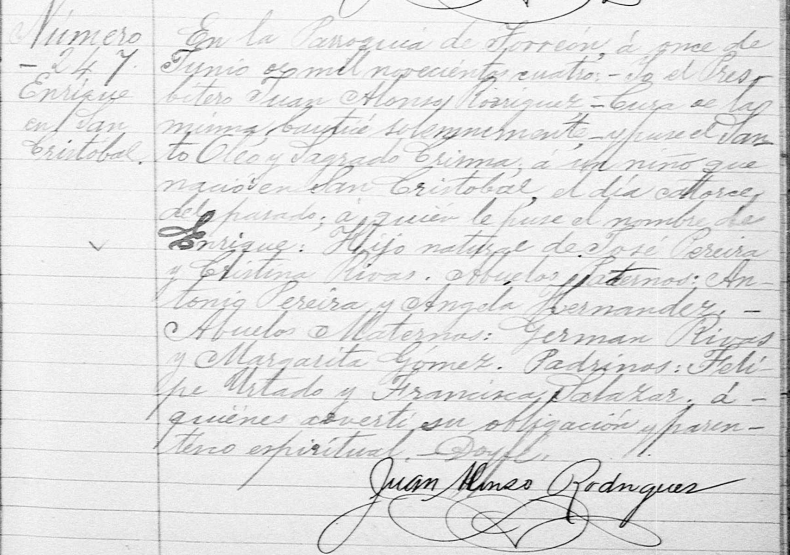 Número
- 247.
Enrique
en San
Cristobal.
En la Parroquia de Torreón, á once de
Junio de mil novecientos cuatro, - Yo el Pres-
bitero Juan Alonso Rodriguez - Cura de la
misma, bauticé solemnemente - y puse el San-
to Oleo y Sagrado Crisma, á un niño que
nació en San Cristobal, el día catorce,
del pasado; á quién le puse el nombre de
Enrique: Hijo natural de José Pereira
y Cristina Rivas. Abuelos Paternos: An-
tonio Pereira y Angela Hernandez. -
Abuelos Maternos: German Rivas
y Margarita Gomez. Padrinos: Feli-
pe Urtado y Francisca Salazar, á -
quiénes advertí su obligación y paren-
tesco espiritual. - Doy fé.
Juan Alonso Rodriguez